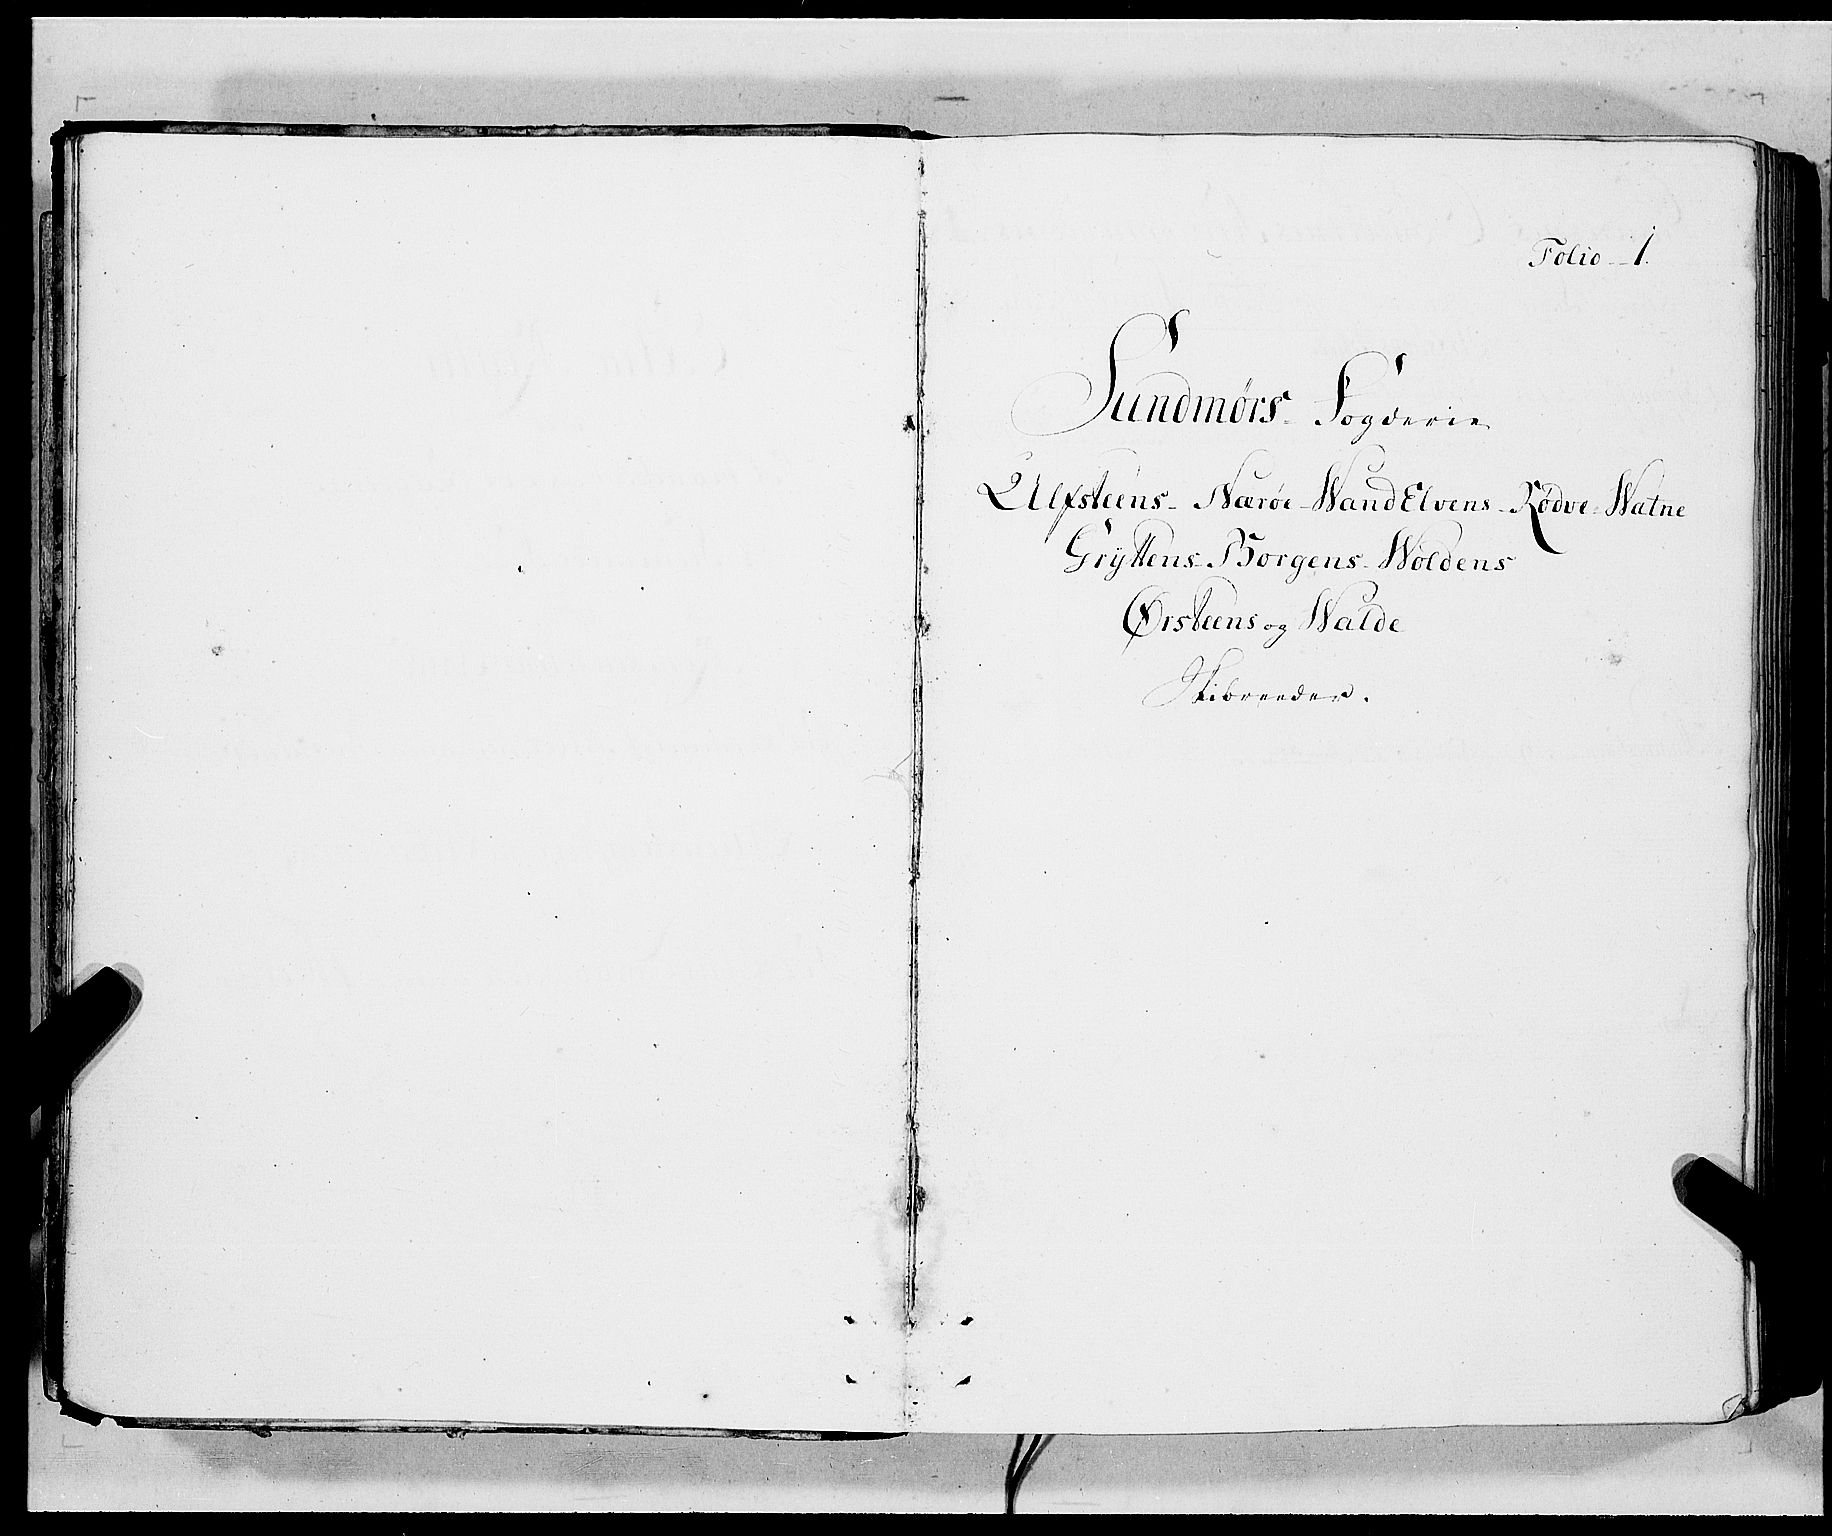 Folio 1.
Sundmørs Fogderie
Ulfsteens- Nærøe- Wand Elvens- Rødve- Watne
Gryttens- Borgens- Woldens
Ørsteens og Walde
Skibreeder.